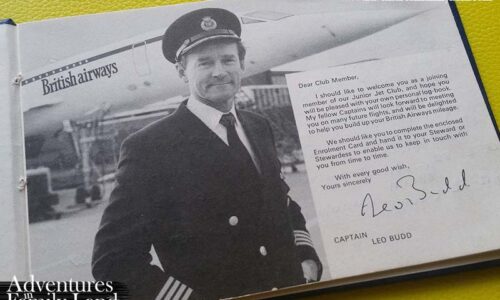 British airways
Dear Club Member,
I should like to welcome you as a joining
member of our Junior Jet Club, and hope you
will be pleased with your own personal log book.
My fellow Captains will look forward to meeting
you on many future flights, and will be delighted
to help you build up your British Airways mileage.
We should like you to complete the enclosed
Enrolment Card and hand it to your Steward or
Stewardess to enable us to keep in touch with
you from time to time.
With every good wish,
Yours sincerely
Leo Budd
CAPTAIN
LEO BUDD
Adventures
in
Family Land